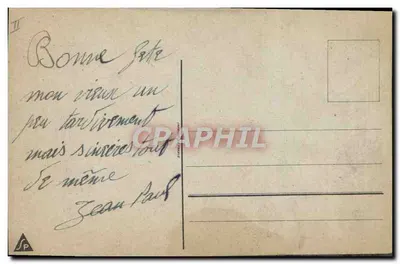 II
Bonne fete
mon vieux un
peu tardivement
mais sincères tout
de même
Jean Paul
CPAPHIL
SP